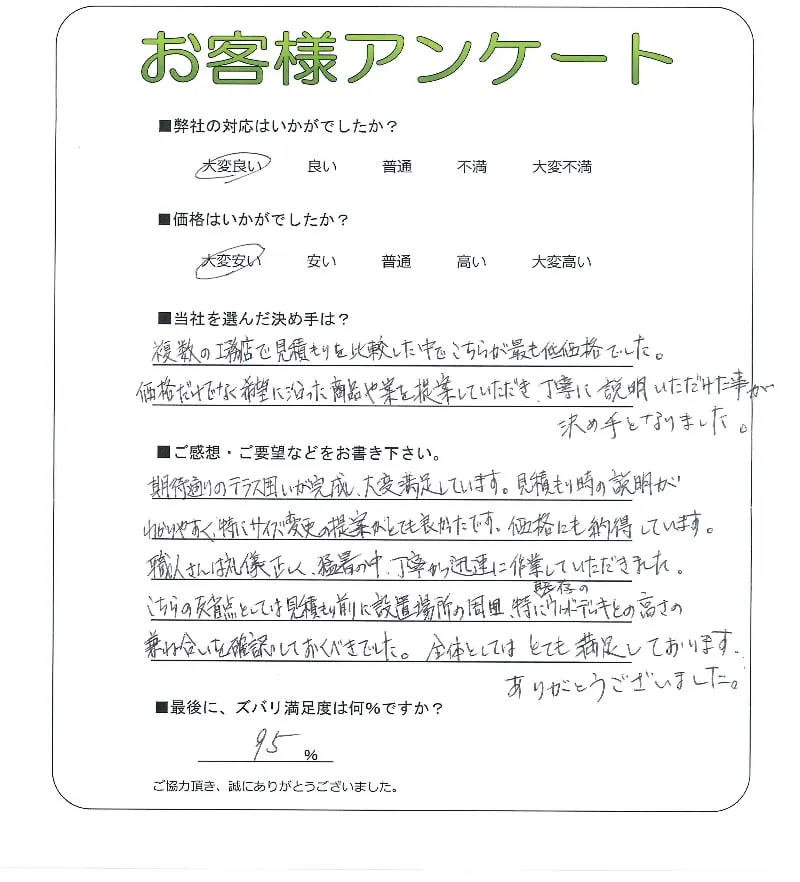 お客様アンケート
■弊社の対応はいかがでしたか？
大変良い 良い 普通 不満 大変不満
■価格はいかがでしたか？
大変安い 安い 普通 高い 大変高い
■当社を選んだ決め手は？
複数の工務店で見積もりを比較した中でこちらが最も低価格でした。
価格だけでなく希望に沿った商品や案を提案していただき、丁寧に説明いただけた事が
決め手となりました。
■ご感想・ご要望などをお書き下さい。
期待通りのテラス囲いが完成、大変満足しています。見積もり時の説明が
わかりやすく、特にサイズ変更の提案がとても良かたです。価格にも納得しています。
職人さんは礼儀正しく、猛暑の中、丁寧かつ迅速に作業していただきました。
既存の
こちらの反省点としては見積もり前に設置場所の周囲、特にウッドデッキとの高さの
兼ね合いを確認しておくべきでした。全体としてはとても満足しております。
ありがとうございました。
■最後に、ズバリ満足度は何％ですか？
95 %
ご協力頂き、誠にありがとうございました。